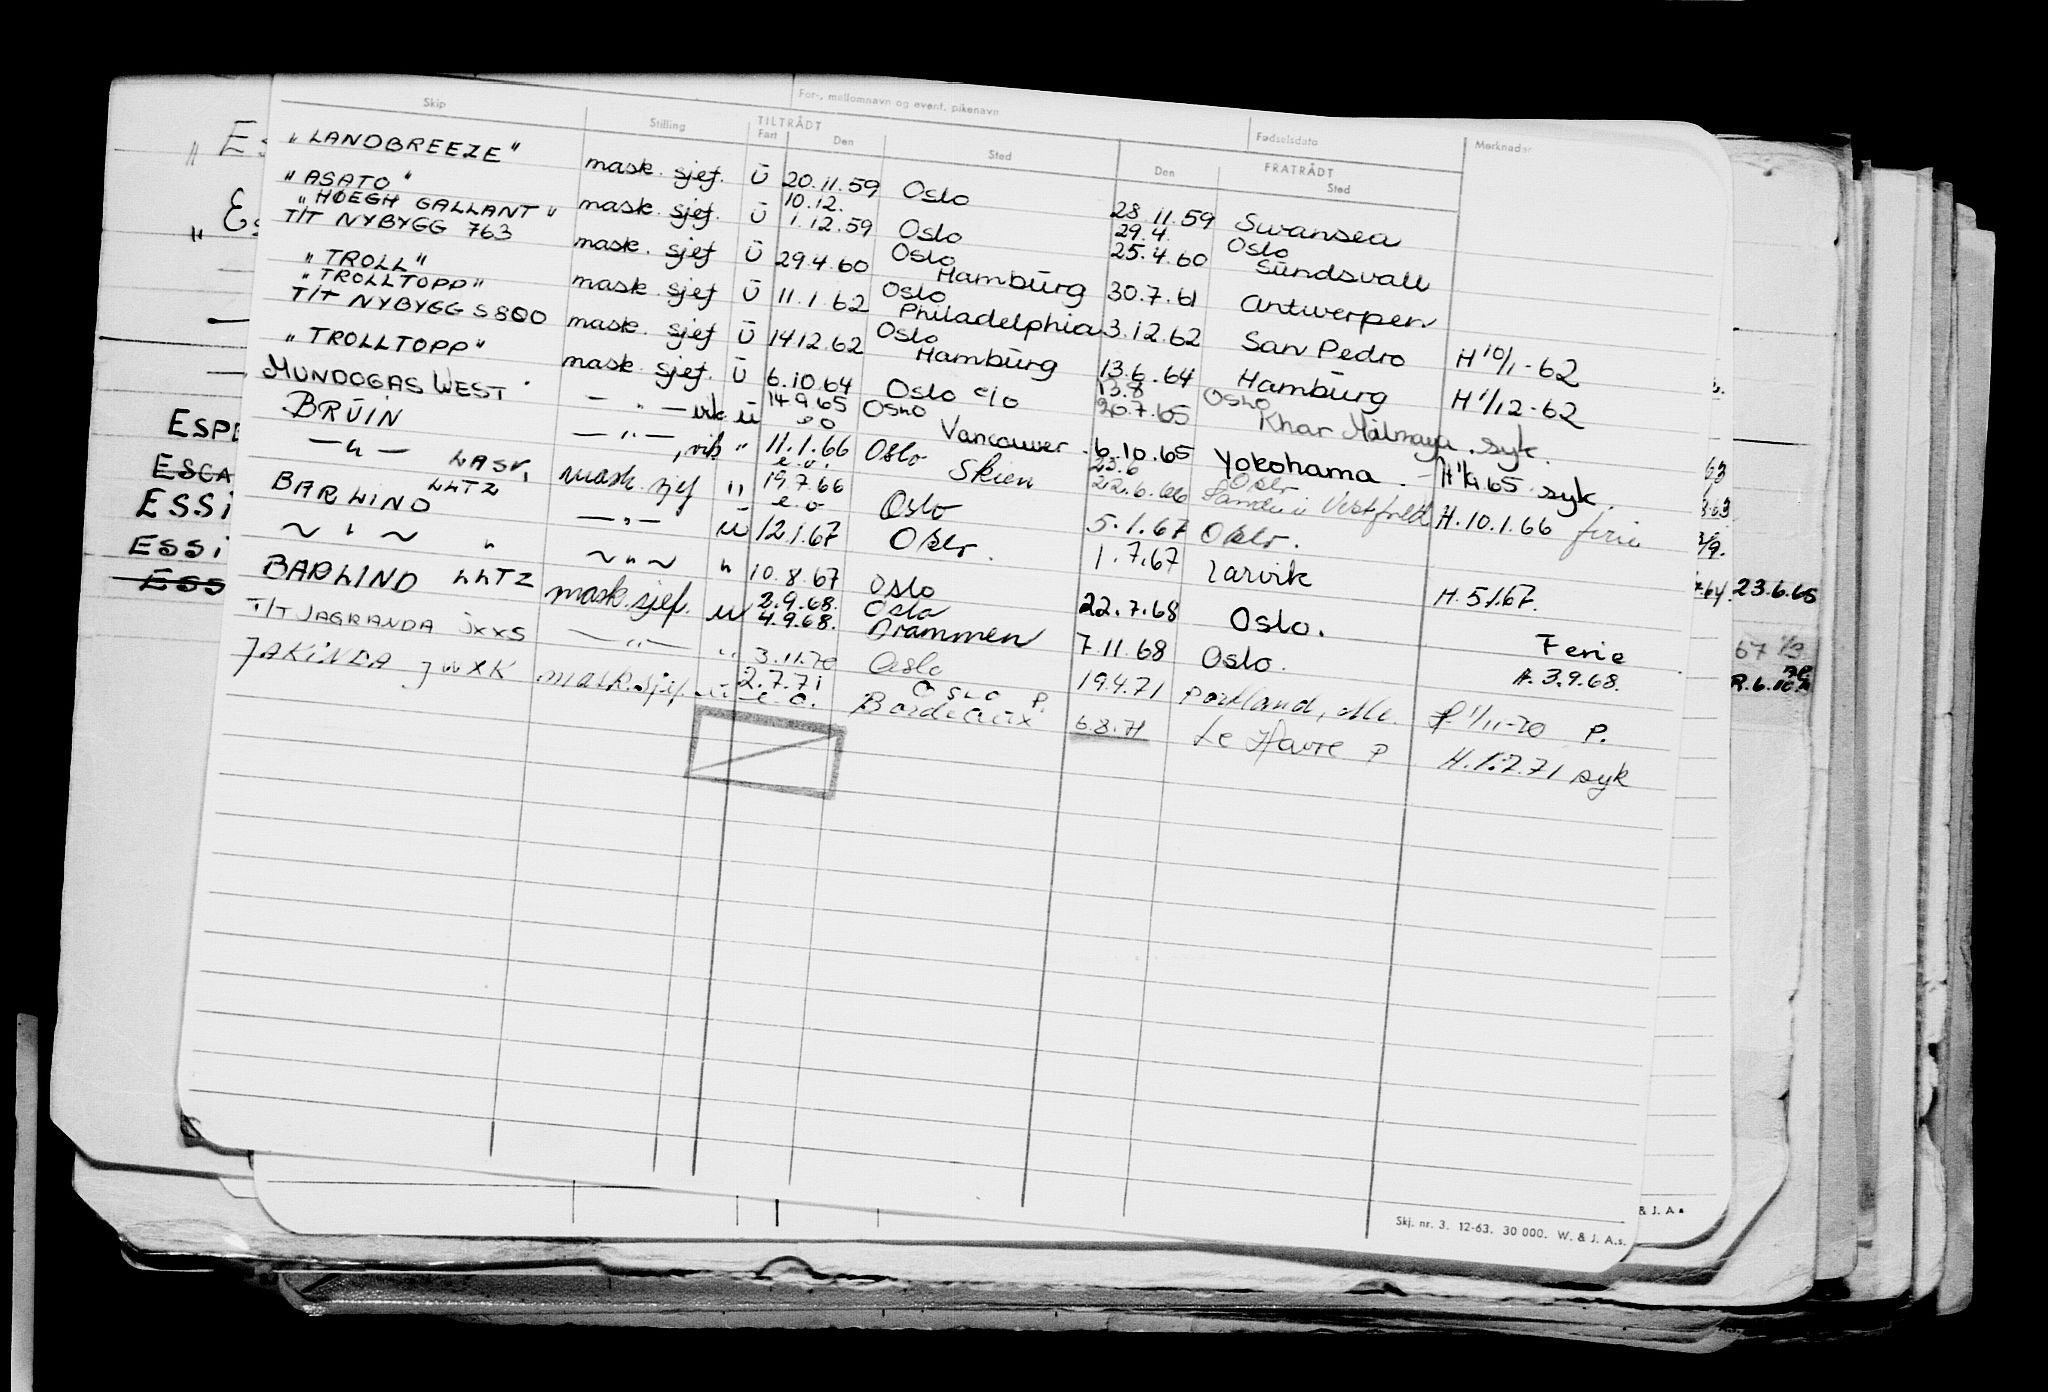 For-, mellomnavn og event. pikenavn
Fødselsdato
Merknader
Skip Stilling TILTRÅDT Fart Den Sted FRATRÅDT Den Sted
"LANDBREEZE" mask. sjef. Ü 20.11.59 Oslo 28.11.59 Swansea
"ASATO" mask. sjef. Ü 10.12. 1.12.59 Oslo 29.4. 25.4.60 Oslo Sündsvall
"HØEGH GALLANT"
T/T NYBYGG 763 mask. sjef Ü 29.4.60 Oslo Hambürg 30.7.61 Antwerpen
"TROLL" mask. sjef Ü 11.1.62 Oslo Philadelphia 3.12.62 San Pedro H 10/1-62
"TROLLTOPP"
T/T NYBYGG S 800 mask. sjef Ü 14.12.62 Oslo Hambürg 13.6.64 Hambürg H 1/12-62
"TROLLTOPP" mask. sjef. Ü 6.10.64 Oslo e/o 13.8 30.7.65 Oslo syk.
MUNDOGAS WEST — " — vik ü 14.9.65 e o Oslo Vancouver 6.10.65 Yokohama syk
BRÜIN — " — , vik " 11.1.66 e.o. Oslo Skien 23.6 22.6.66 Oslo H. 10.1.66 ferie
— " — LASV, LLTZ mask. sjef " 19.7.66 e.o Oslo 5.1.67 Oslo.
BARLIND — " — ü 12.1.67 Oslo. 1.7.67 Larvik H. 5.1.67.
~ " ~ " ~ " ~ " 10.8.67 Oslo 22.7.68 Oslo. Ferie
BARLIND LLTZ mask. sjef. ü 2.9.68. 4.9.68. Oslo Drammen 7.11.68 Oslo. A. 3.9.68.
T/T JAGRANDA JXXS — " — " 3.11.70 Oslo 19.4.71 Portland, Me. 1/11-70 P.
JAKINDA JWXK mask. sjef. ü 2.7.71 e.o. OSLO P. Bordeaux 6.8.71 Le Havre P H. 1.7.71 syk
ESSI
ESSI
ESS
23.6.65
Skj. nr. 3. 12-63. 30 000. W. & J. A.s.
& J. A.s